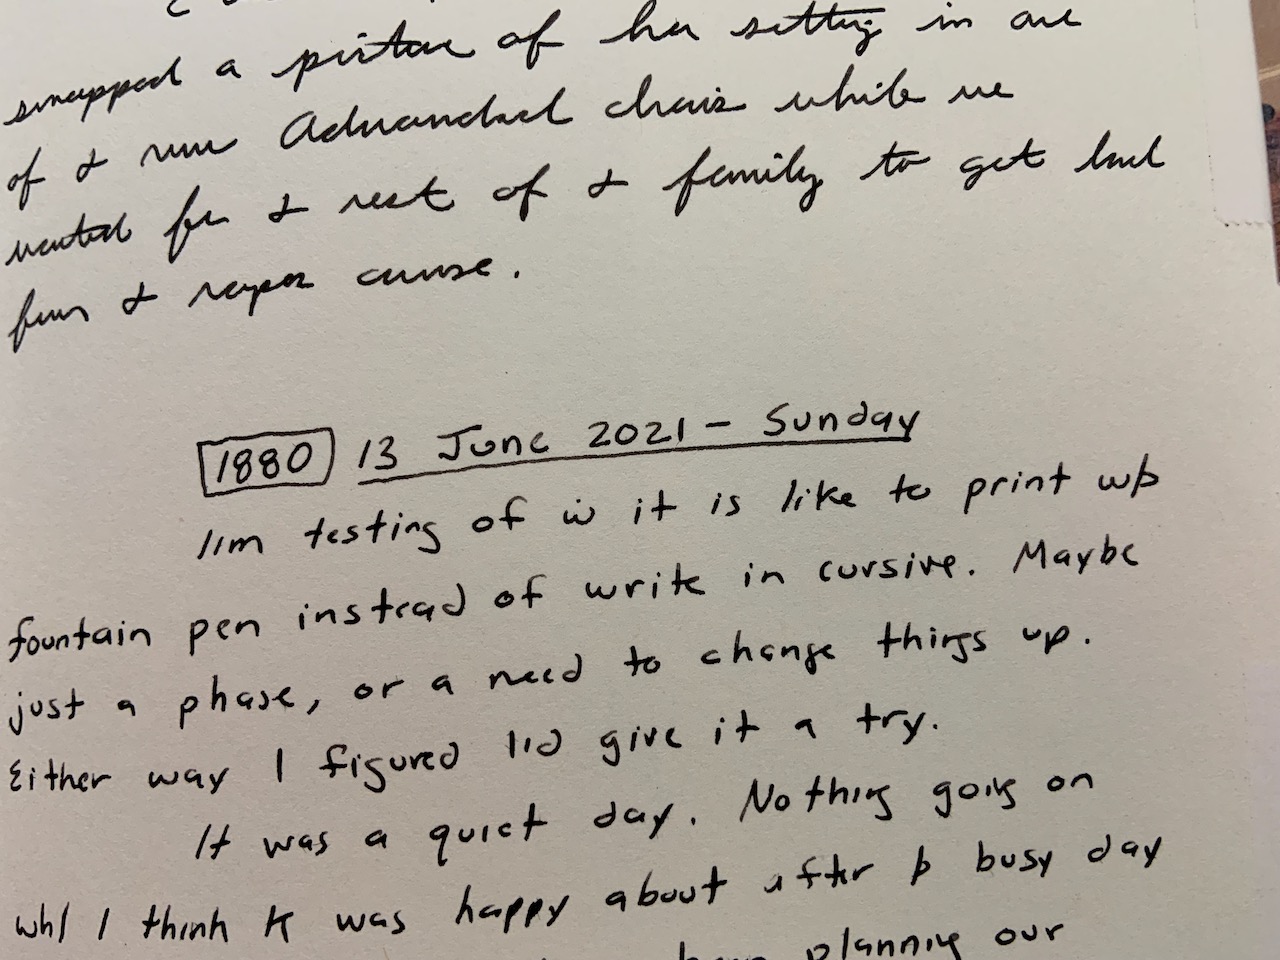 snapped a picture of her sitting in one
of & new Adirondack chairs while we
waited for & rest of & family to get back
from & rope course.
1880 13 June 2021 - Sunday
I'm testing of it is like to print
fountain pen instead of write in cursive. Maybe
just a phase, or a need to change things up.
Either way I figured I'd give it a try.
It was a quiet day. Nothing going on
I think K was happy about after busy day
planning our